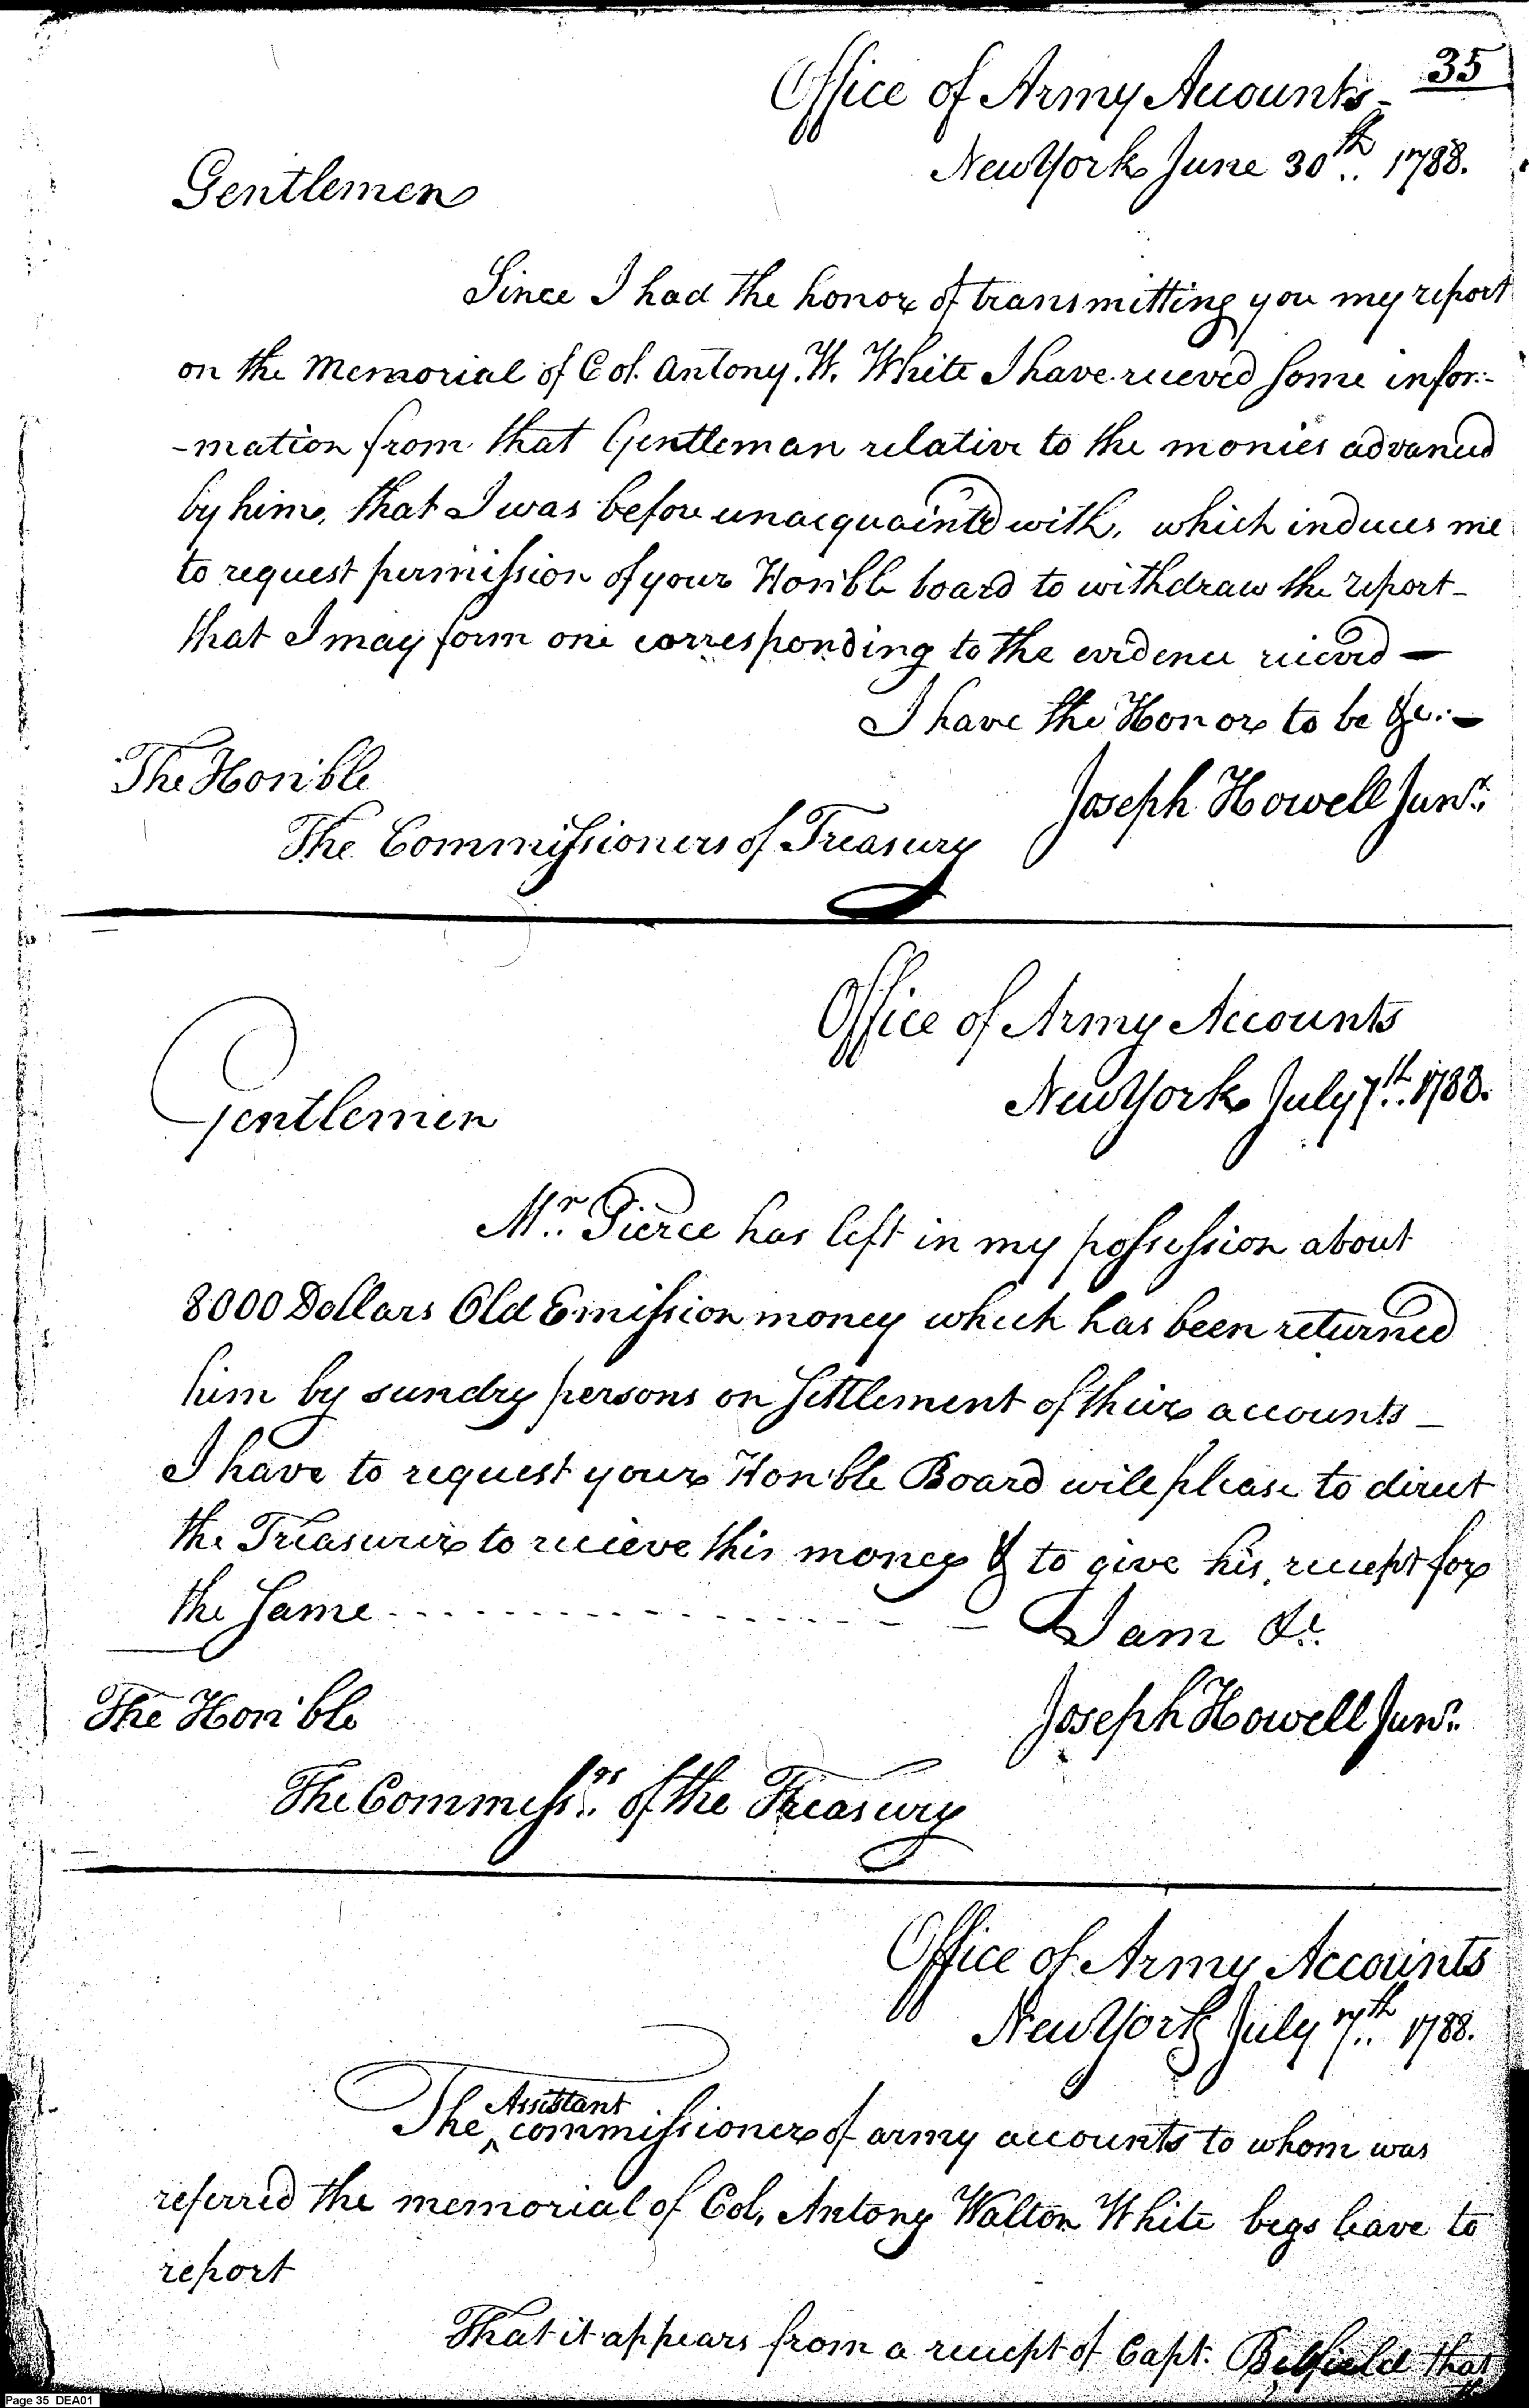 35
Office of Army Accounts -
New York June 30th.. 1788.
Gentlemen
Since I had the honor of transmitting you my report
on the Memorial of Col. Antony. W. White I have recieved some infor:-
-mation from that Gentleman relative to the monies advanced
by him, that I was before unacquainted with, which induces me
to request permission of your Hon'ble board to withdraw the report -
that I may form one corresponding to the evidence recieved —
I have the Honor to be &c: -
The Hon'ble
Joseph Howell Junr.
The Commissioners of Treasury
Office of Army Accounts
New York July 7th.. 1788.
Gentlemen
Mr.. Pierce has left in my possession about
8000 Dollars Old Emission money which has been returned
him by sundry persons on settlement of their accounts -
I have to request your Hon'ble Board will please to direct
the Treasurer to recieve this money & to give his receipt for
the same - - - - - - - - - - - - - - - - - - I am &c.
The Hon'ble
Joseph Howell Junr.
The Commissrs.. of the Treasury
Office of Army Accounts
New York July 7th.. 1788.
Assistant
The ^ commissioner of army accounts to whom was
referred the memorial of Col. Antony Walton White begs leave to
report
That it appears from a receipt of Capt. Belfield that
Page 35 DEA01